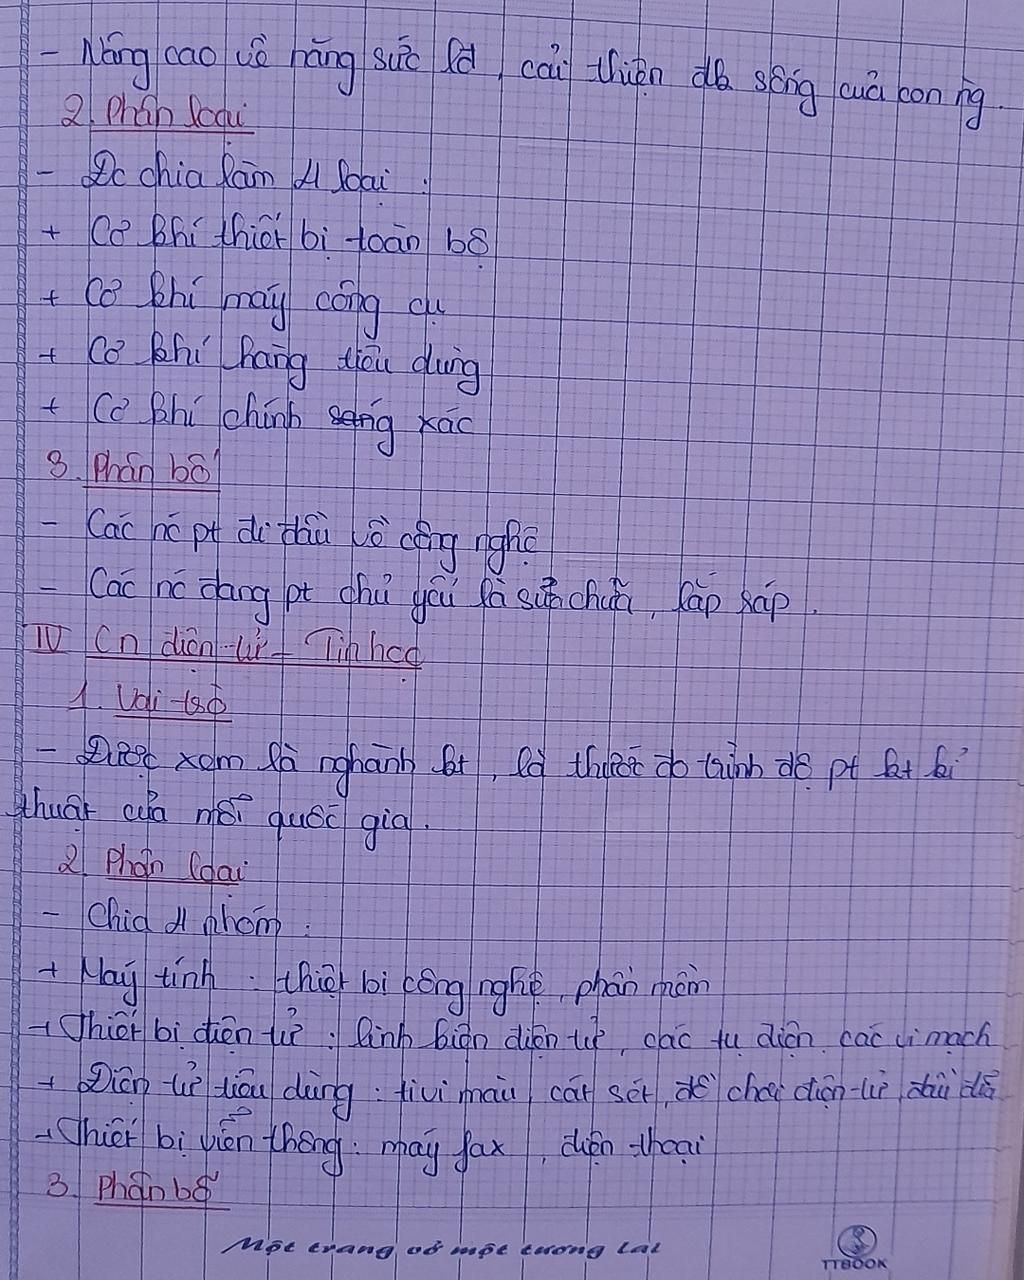 - Nâng cao về năng sức lđ, cải thiện đk sống của con ng.
2. Phân loại
- Đc chia làm 4 loại :
+ Cơ khí thiết bị toàn bộ
+ Cơ khí máy công cụ
+ Cơ khí hàng tiêu dùng
+ Cơ khí chính xác
3. Phân bố
- Các nc pt đi đầu về công nghệ
- Các nc đang pt chủ yếu là sửa chữa, lắp ráp.
IV Cn điện tử - Tin học
1. Vai trò
- Được xem là nghành kt, là thước đo trình độ pt kt kĩ
thuật của mỗi quốc gia.
2. Phân loại
- Chia 4 nhóm :
+ Máy tính : thiết bị công nghệ, phần mềm
+ Thiết bị điện tử : linh kiện điện tử, các tụ điện, các vi mạch
+ Điện tử tiêu dùng : tivi màu, cát sét, đồ chơi điện tử, đầu đĩa
+ Thiết bị viễn thông : máy fax, điện thoại
3. Phân bố
Một trang vở một tương lai
TTBOOK